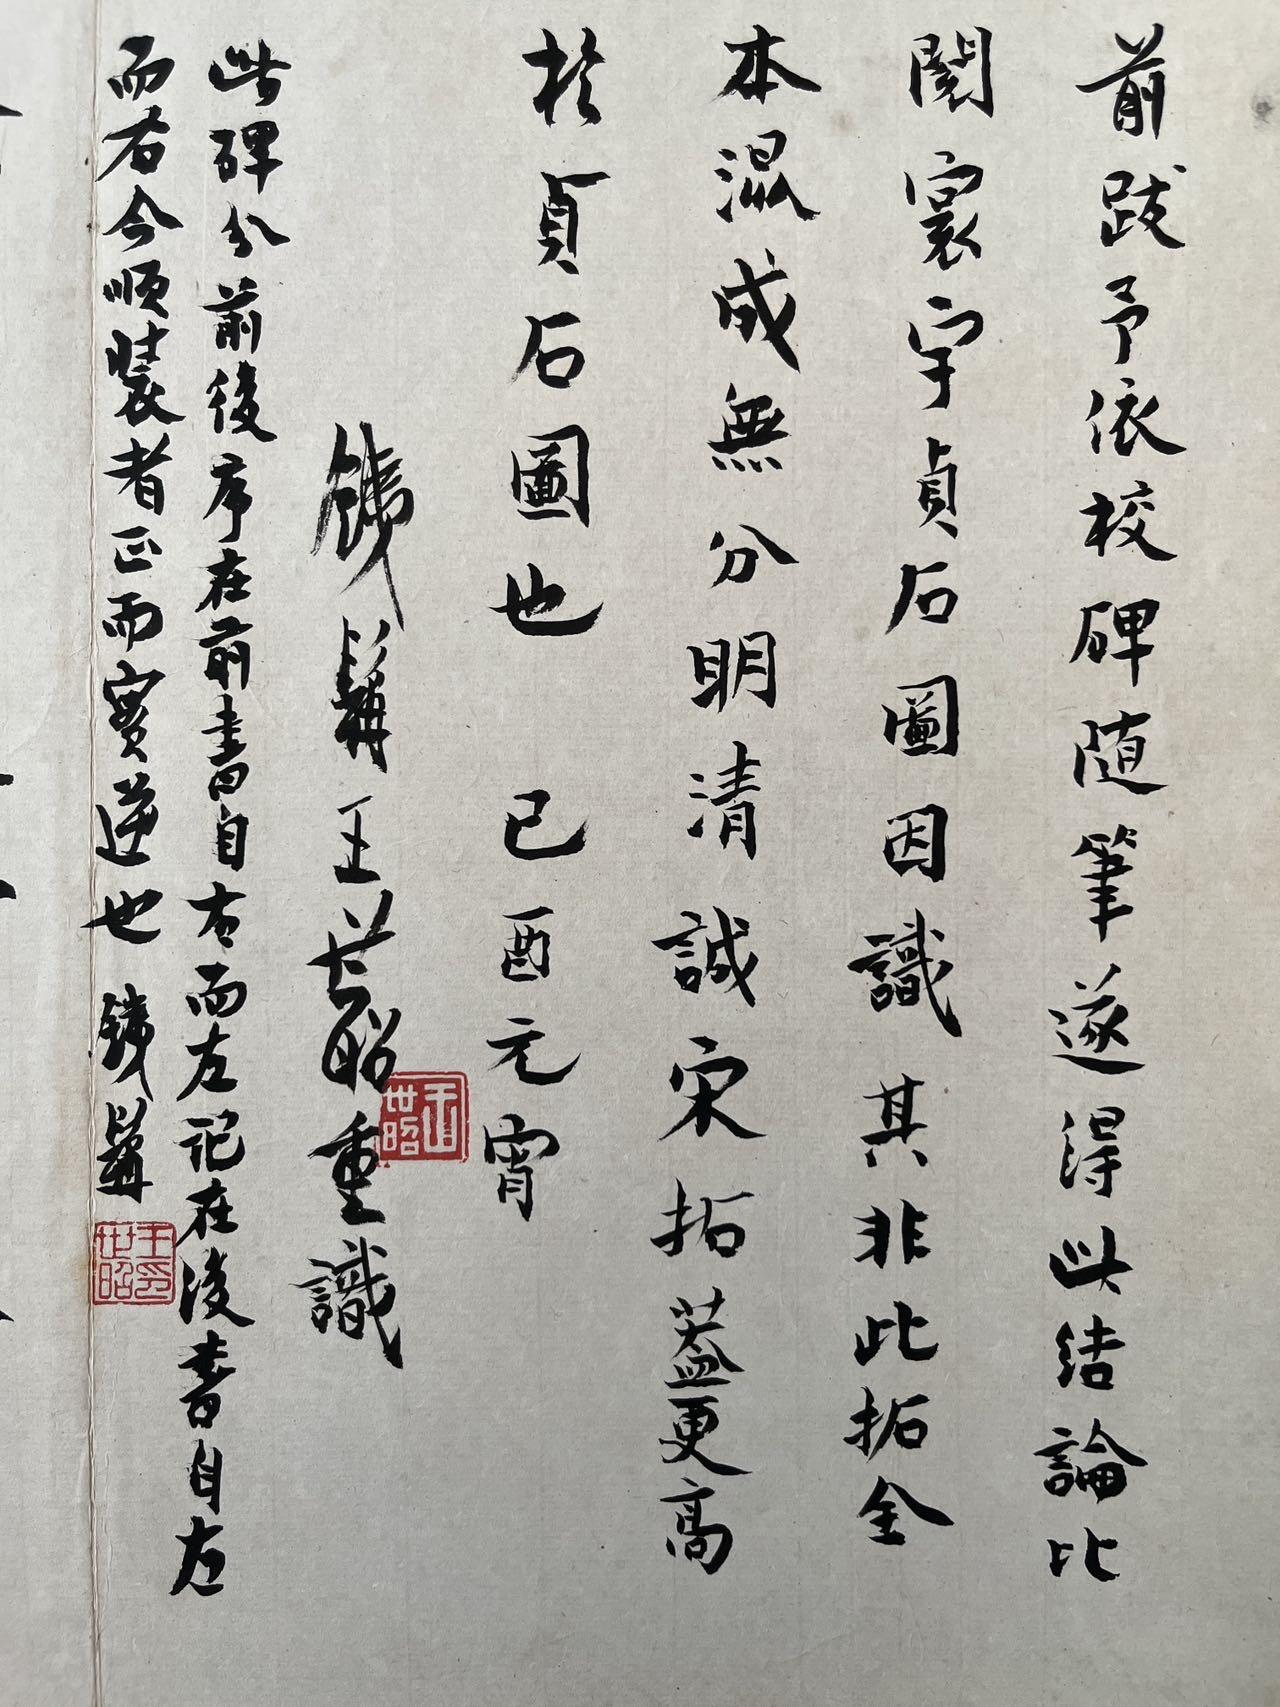 前跋予依校碑随筆遂得此结論比
閲寰宇貞石圖因識其非此拓全
本混成無分明清誠宋拓蓋更高
於貞石圖也 已酉元宵
鐵髯王世昭重識
王世昭
此碑分前後序在前書自右而左記在後書自左
而右今順装者正而實逆也 鐵髯
王世昭印